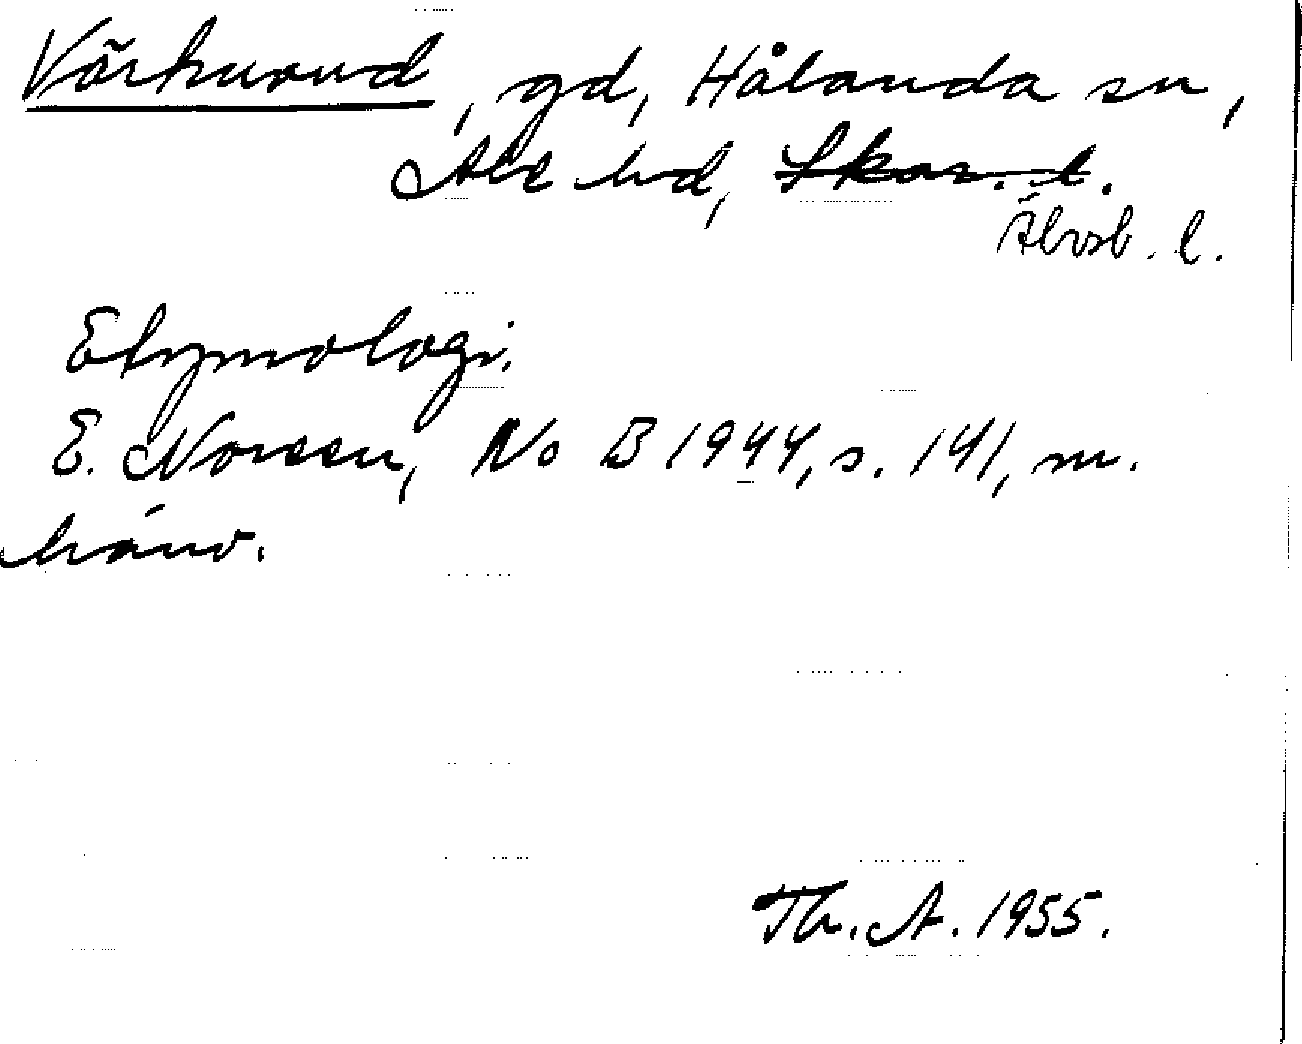 Vårkumd, gd, Hålanda sn,
Ale hd, Skar. l.
Älvsb. l.
Etymologi.
E. Noreen, No B 1944, s. 141, m.
hänv.
Th. A. 1955.